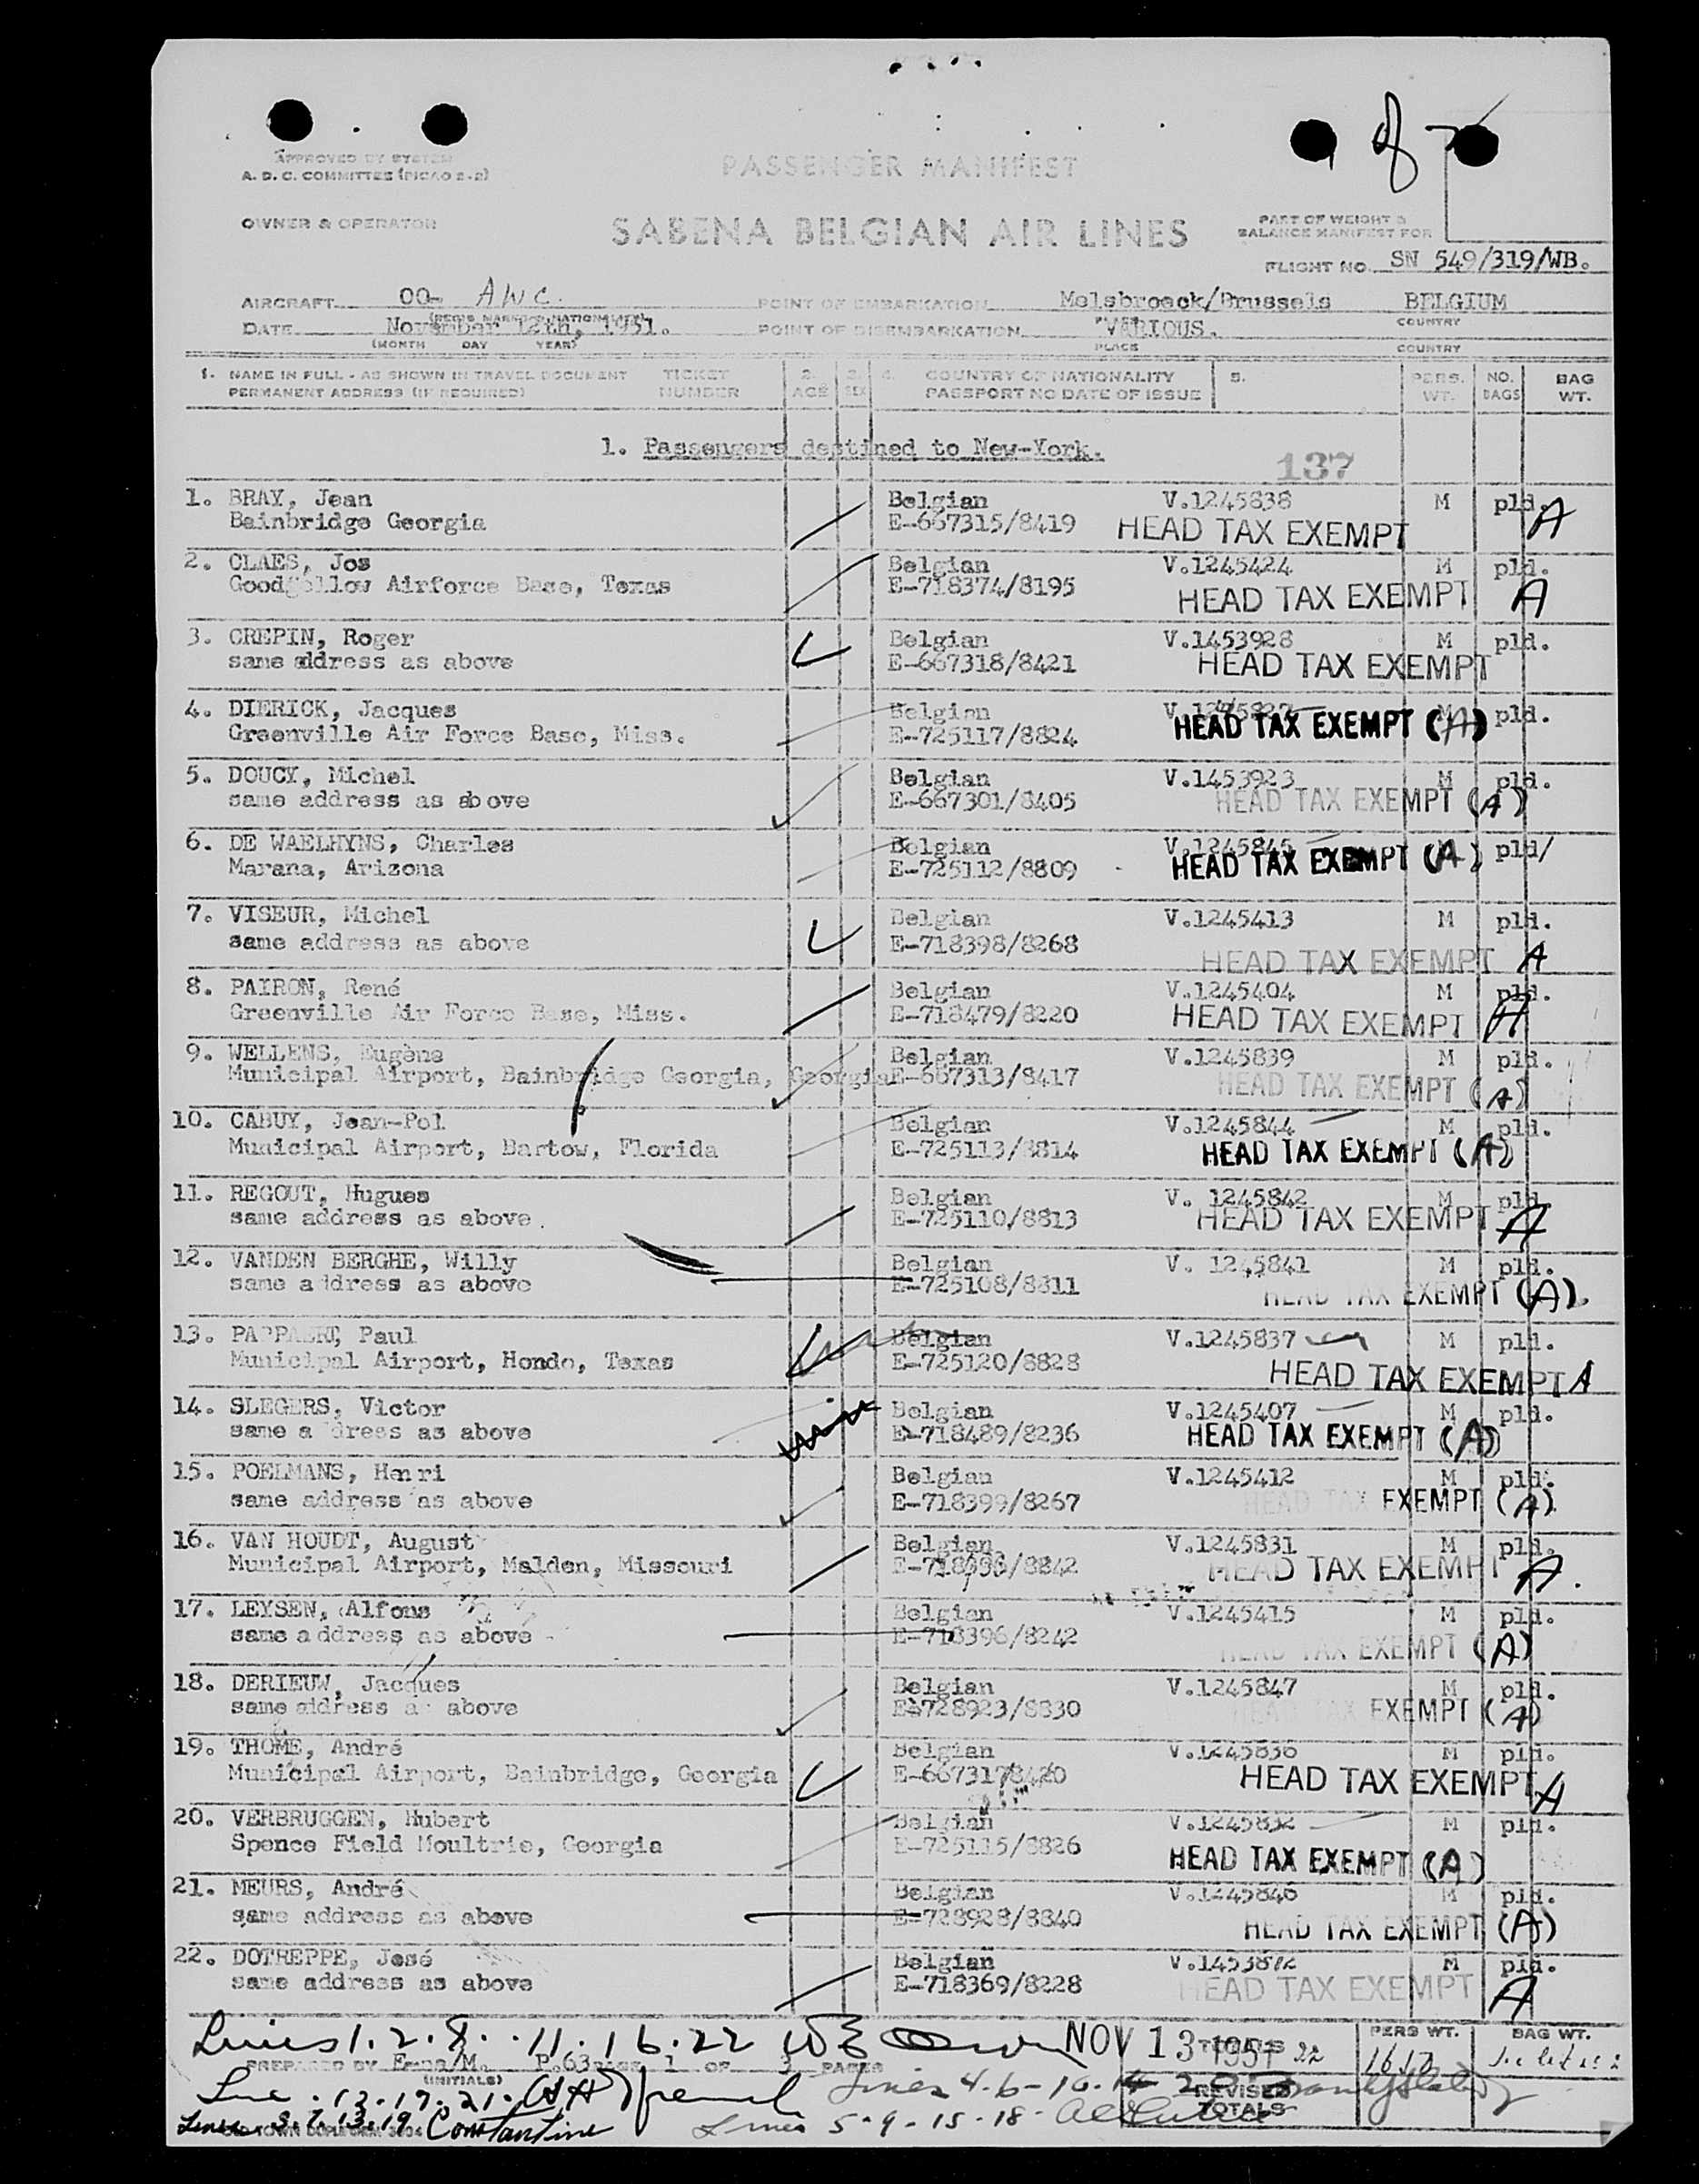 of
APPROVED BY SYSTEM
A. D. C. COMMITTEE (PICAO 2-2)
PASSENGER MANIFEST
OWNER & OPERATOR
SABENA BELGIAN AIR LINES
PART OF WEIGHT &
BALANCE MANIFEST FOR
FLIGHT NO. SN 549/319/WB.
AIRCRAFT OO- AWC. POINT OF EMBARKATION Melsbroeck/Brussels BELGIUM
DATE November 12th, 1951. POINT OF DISEMBARKATION "VARIOUS. COUNTRY
(MONTH DAY YEAR) PLACE COUNTRY
1. NAME IN FULL - AS SHOWN IN TRAVEL DOCUMENT TICKET 2. 3. 4. COUNTRY OF NATIONALITY 5. PERS. NO. BAG
PERMANENT ADDRESS (IF REQUIRED) NUMBER AGE SEX PASSPORT NO DATE OF ISSUE WT. BAGS WT.
1. Passengers destined to New-York.
137
1. BRAY, Jean Belgian V.1245838 M pld. A
Bainbridge Georgia E-667315/8419 HEAD TAX EXEMPT
2. CLAES, Jos Belgian V.1245424 M pld.
Goodfellow Airforce Base, Texas E-718374/8195 HEAD TAX EXEMPT A
3. CREPIN, Roger Belgian V.1453928 M pld.
same address as above E-667318/8421 HEAD TAX EXEMPT
4. DIERICK, Jacques Belgian pld.
Greenville Air Force Base, Miss. E-725117/8824 HEAD TAX EXEMPT (A)
5. DOUCY, Michel Belgian V.1453923 M pld.
same address as above E-667301/8405 HEAD TAX EXEMPT (A)
6. DE WAELHYNS, Charles Belgian V.1245845 pld/
Marana, Arizona E-725112/8809 HEAD TAX EXEMPT (A)
7. VISEUR, Michel Belgian V.1245413 M pld.
same address as above E-718398/8268 HEAD TAX EXEMPT A
8. PAIRON, René Belgian V.1245404 M pld.
Greenville Air Force Base, Miss. E-718479/8220 HEAD TAX EXEMPT A
9. WELLENS, Eugène Belgian V.1245839 M pld.
Municipal Airport, Bainbridge Georgia, Georgia E-667313/8417 HEAD TAX EXEMPT (A)
10. CABUY, Jean-Pol Belgian V.1245844 M pld.
Municipal Airport, Bartow, Florida E-725113/8814 HEAD TAX EXEMPT (A)
11. REGOUT, Hugues Belgian V. 1245842 M pld
same address as above. E-725110/8813 HEAD TAX EXEMPT A
12. VANDEN BERGHE, Willy Belgian V. 1245841 M pld.
same address as above E-725108/8811 HEAD TAX EXEMPT (A)
13. PAPPAERT, Paul Belgian V.1245837 M pld.
Municipal Airport, Hondo, Texas E-725120/8828 HEAD TAX EXEMPT A
14. SLEGERS, Victor Belgian V.1245407 M pld.
same address as above E-718489/8236 HEAD TAX EXEMPT (A)
15. POELMANS, Henri Belgian V.1245412 M pld.
same address as above E-718399/8267 HEAD TAX EXEMPT (A)
16. VAN HOUDT, August Belgian V.1245831 M pld.
Municipal Airport, Malden, Missouri HEAD TAX EXEMPT A.
17. LEYSEN, Alfons Belgian V.1245415 M pld.
same address as above - E-718396/8242 HEAD TAX EXEMPT (A)
18. DERIEUW, Jacques Belgian V.1245847 M pld.
same address as above E-728923/8830 HEAD TAX EXEMPT (A)
19. THOMÉ, André Belgian V.1245836 M pld.
Municipal Airport, Bainbridge, Georgia E-667317/8420 HEAD TAX EXEMPT A
20. VERBRUGGEN, Hubert Belgian V.1245832 M pld.
Spence Field Moultrie, Georgia E-725115/8826 HEAD TAX EXEMPT (A)
21. MEURS, André Belgian V.1245846 M pld.
same address as above E-728928/8840 HEAD TAX EXEMPT (A)
22. DOTREPPE, José Belgian V.1453872 M pld.
same address as above E-718369/8228 HEAD TAX EXEMPT A
Lines 1. 2. 8. 11. 16. 22 NOV 13 1951 TOTALS 22 PERS WT. BAG WT.
PREPARED BY P.63 PAGE 1 OF 3 PAGES
(INITIALS)
Line 12. 17. 21. Lines 4-6-10-14 20 REVISED
Lines 3. 7. 13. 19 Constantine Lines 5-9-15-18- TOTALS